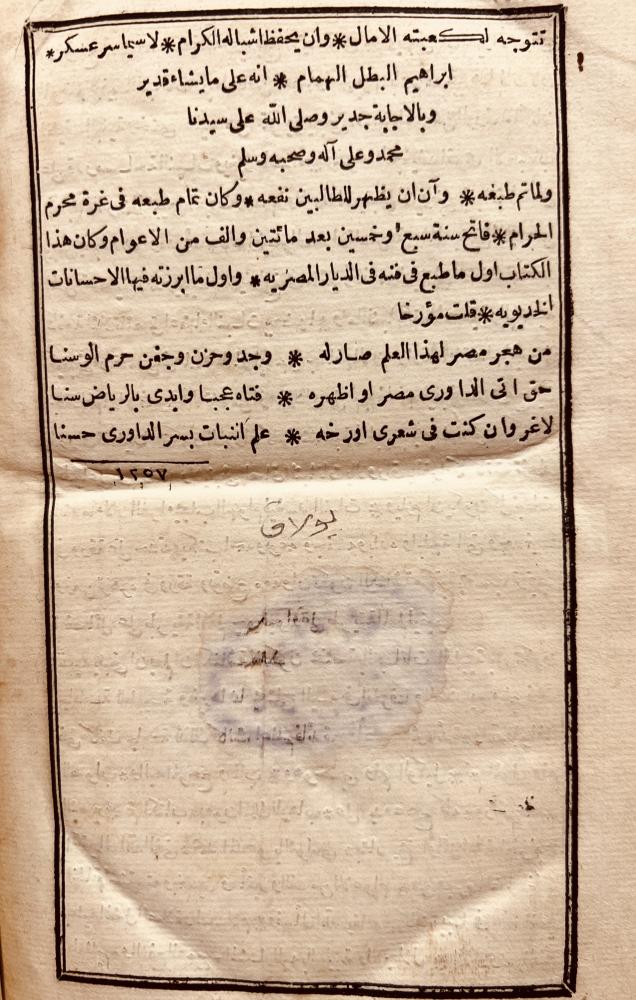 تتوجه لكعبته الامال * وان يحفظ اشباله الكرام * لاسيما سر عسكر *
ابراهيم البطل الهمام * انه على ما يشاء قدير
وبالاجابة جدير وصلى الله على سيدنا
محمد وعلى آله وصحبه وسلم
ولما تم طبعه * وآن ان يظهر للطالبين نفعه * وكان تمام طبعه فى غرة محرم
الحرام * فاتح سنة سبع وخمسين بعد مائتين والف من الاعوام وكان هذا
الكتاب اول ما طبع فى فنه فى الديار المصريه * واول ما ابرزته فيها الاحسانات
الخديويه * قلت مؤرخا
من هجر مصر لهذا العلم صارله * وجد وحزن وجفن حرم الوسنا
حتى اتى الداورى مصر او اظهره * فتاه عجبا وابدى بالرياض سنا
لاغر وان كنت فى شعرى اورخه * علم النبات بسر الداورى حسنا
١٢٥٧
بولاق